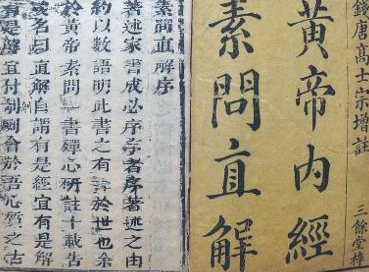 錢唐高士宗增註
黃帝內經
素問直解
三餘堂梓
素問直解序
著述家書成必序序者序著述之由
約以數語明此書之有裨於世也余
於黃帝素問一書殫心研註十載告
成名曰直解自謂有是經宜有是解
有是解宜付剞劂會於吾心質之古